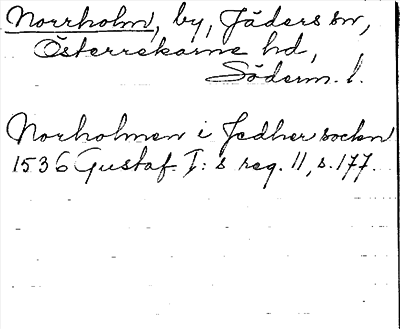 Norrholm, by, Jäders sn,
Österrekarne hd,
Söderm. l.
Norholmen i Jedher socken
1536 Gustaf I:s reg. 11, s. 177.